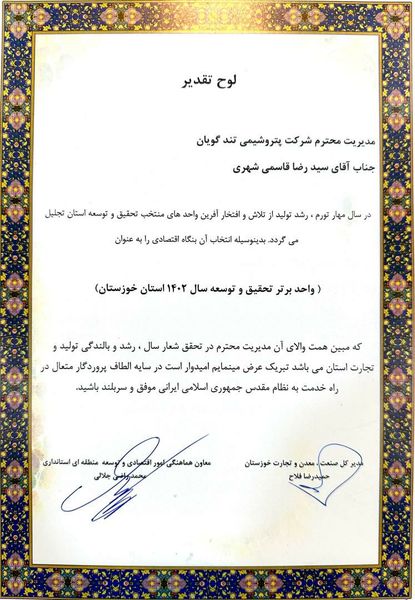 لوح تقدیر
مدیریت محترم شرکت پتروشیمی تند گویان
جناب آقای سید رضا قاسمی شهری
در سال مهار تورم ، رشد تولید از تلاش و افتخار آفرین واحد های منتخب تحقیق و توسعه استان تجلیل
می گردد. بدینوسیله انتخاب آن بنگاه اقتصادی را به عنوان
( واحد برتر تحقیق و توسعه سال ۱۴۰۲ استان خوزستان)
که مبین همت والای آن مدیریت محترم در تحقق شعار سال ، رشد و بالندگی تولید و
تجارت استان می باشد تبریک عرض مینمایم امیدوار است در سایه الطاف پروردگار متعال در
راه خدمت به نظام مقدس جمهوری اسلامی ایرانی موفق و سربلند باشید.
مدیر کل صنعت ، معدن و تجارت خوزستان
حمیدرضا فلاح
معاون هماهنگی امور اقتصادی و توسعه منطقه ای استانداری
محمدرضی جلالی